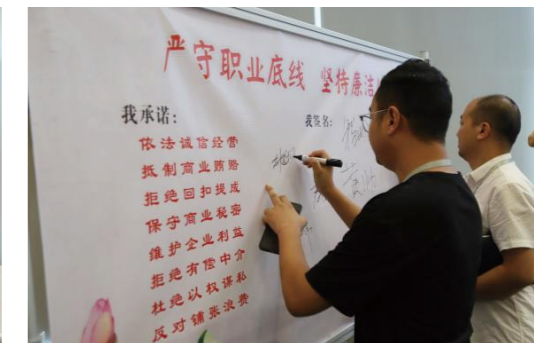 严守职业底线 坚持廉洁
我承诺：
我签名：
依法诚信经营
抵制商业贿赂
拒绝回扣提成
保守商业秘密
维护企业利益
拒绝有偿中介
杜绝以权谋私
反对铺张浪费